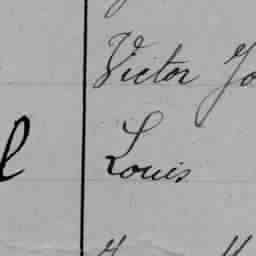 Victor Jo
Louis